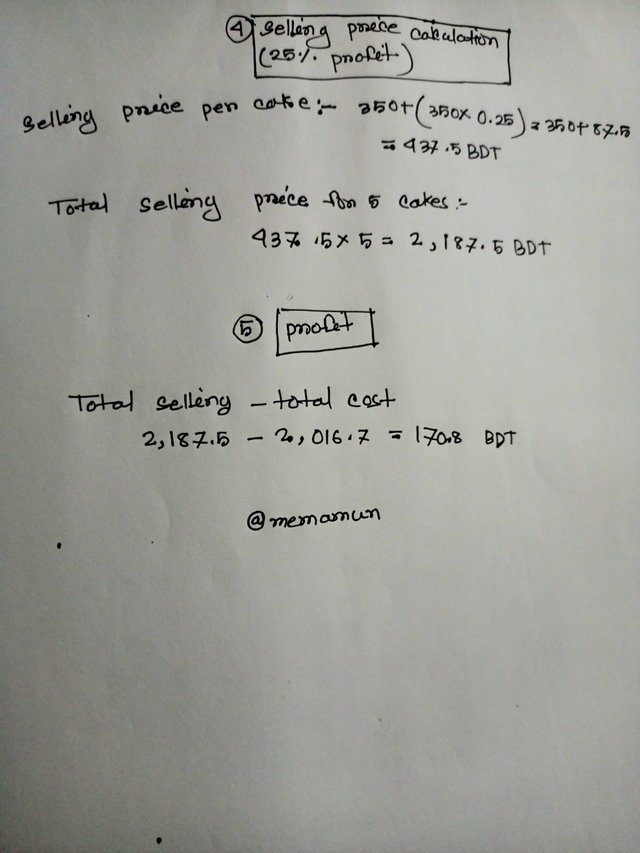 ④ Selling price calculation
(25% profit)
Selling price per cake:- 350+(350×0.25)=350+87.5
= 437.5 BDT
Total selling price for 5 cakes:-
437.5×5 = 2,187.5 BDT
⑤ profit
Total selling - total cost
2,187.5 - 2,016.7 = 170.8 BDT
@memamun